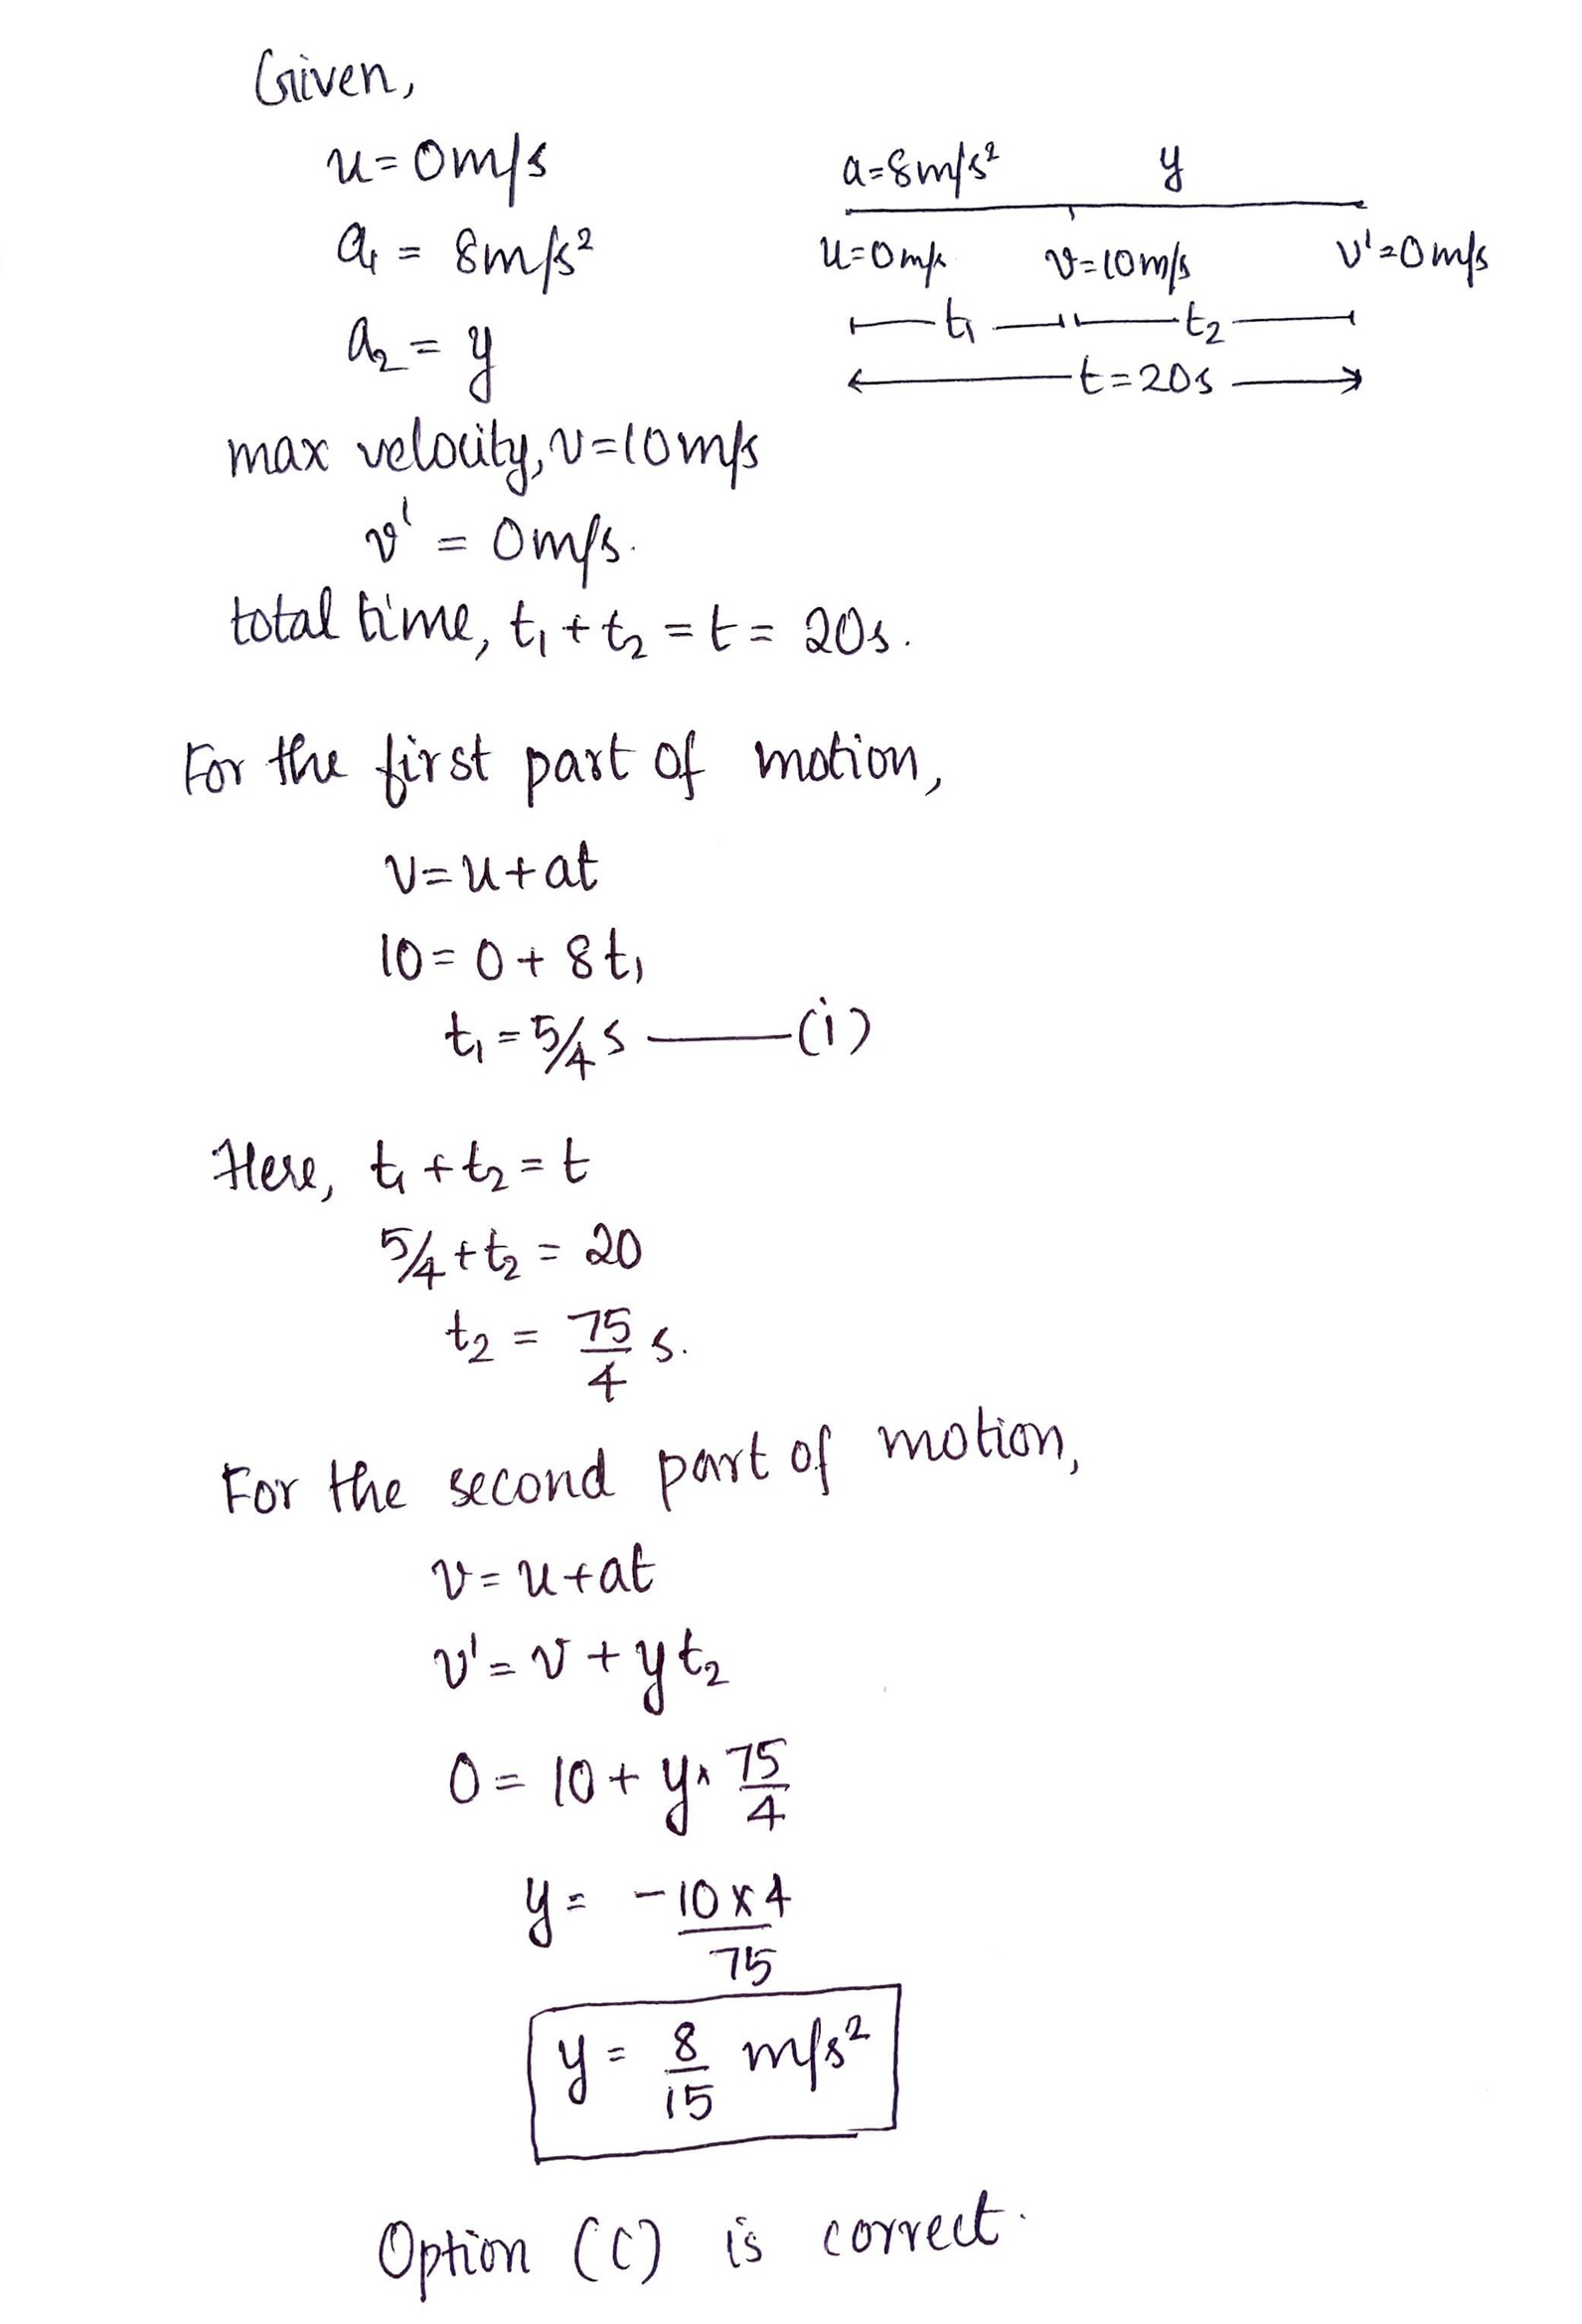 Given,
u=0m/s
a₁ = 8m/s²
a₂ = y
a=8m/s² y
u=0m/s v=10m/s v'=0m/s
t₁ t₂
t=20s
max velocity, v=10m/s
v' = 0m/s.
total time, t₁ + t₂ = t = 20s.
For the first part of motion,
v=u+at
10=0+8t₁
t₁=5/4 s ——(i)
Here, t₁+t₂=t
5/4+t₂ = 20
t₂ = 75/4 s.
For the second part of motion,
v=u+at
v'=v+yt₂
0=10+y×75/4
y= -10×4/75
y= 8/15 m/s²
Option (C) is correct.